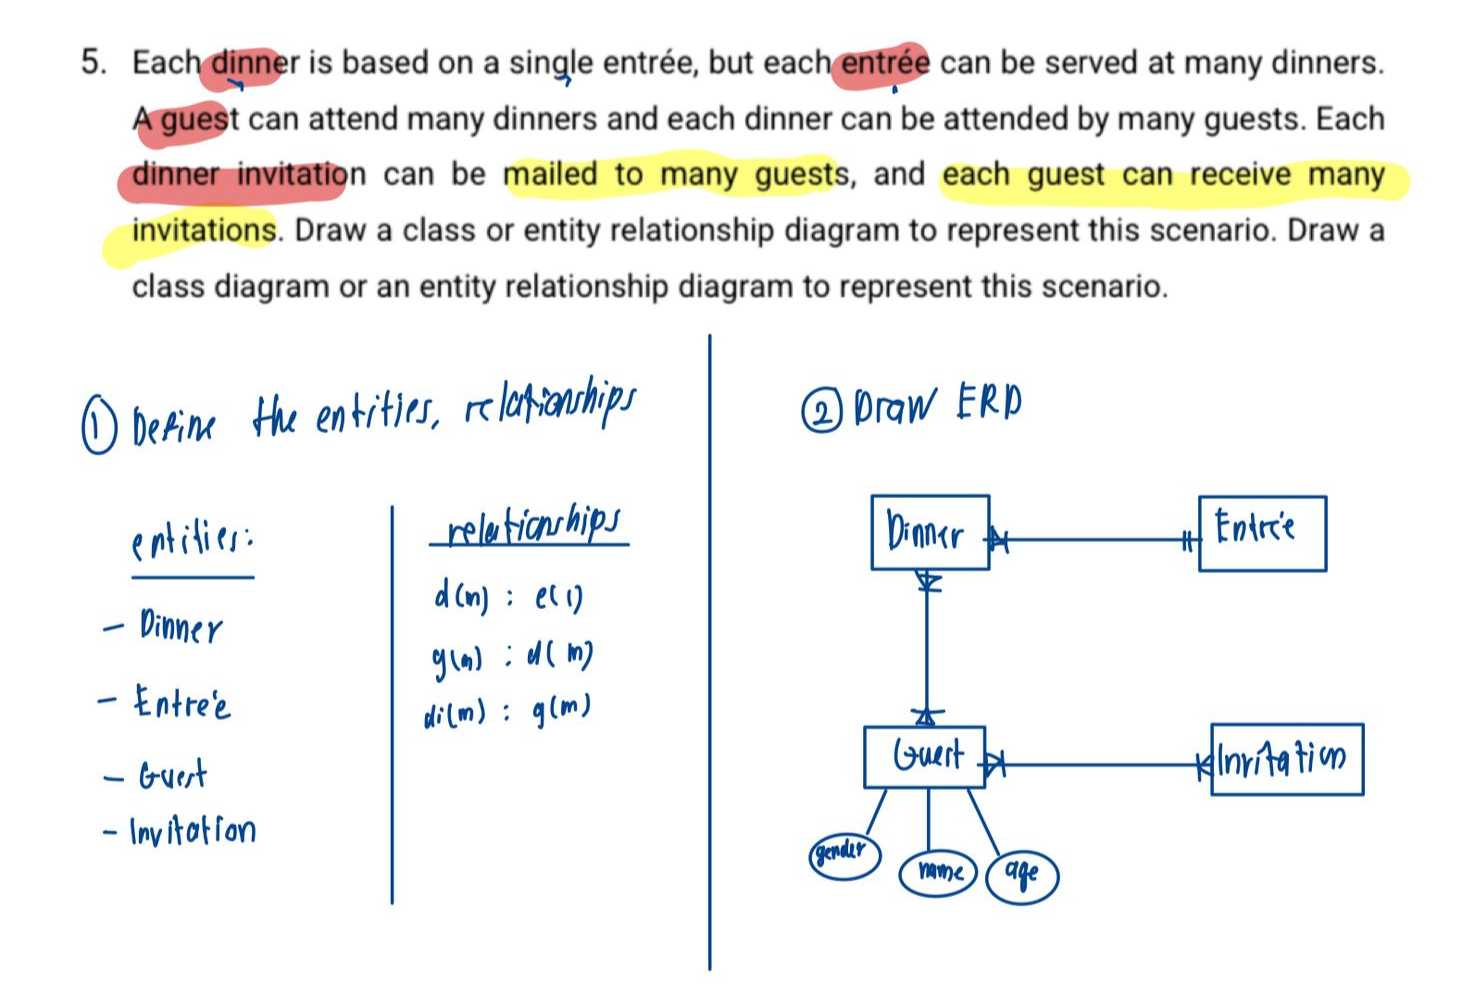 5. Each dinner is based on a single entrée, but each entrée can be served at many dinners.
A guest can attend many dinners and each dinner can be attended by many guests. Each
dinner invitation can be mailed to many guests, and each guest can receive many
invitations. Draw a class or entity relationship diagram to represent this scenario. Draw a
class diagram or an entity relationship diagram to represent this scenario.
① Define the entities, relationships
entities:
- Dinner
- Entreé
- Guest
- Invitation
relationships
d(m) : e(1)
g(m) : d(m)
di(m) : g(m)
② Draw ERD
Dinner
Entreé
Guest
Invitation
gender
name
age